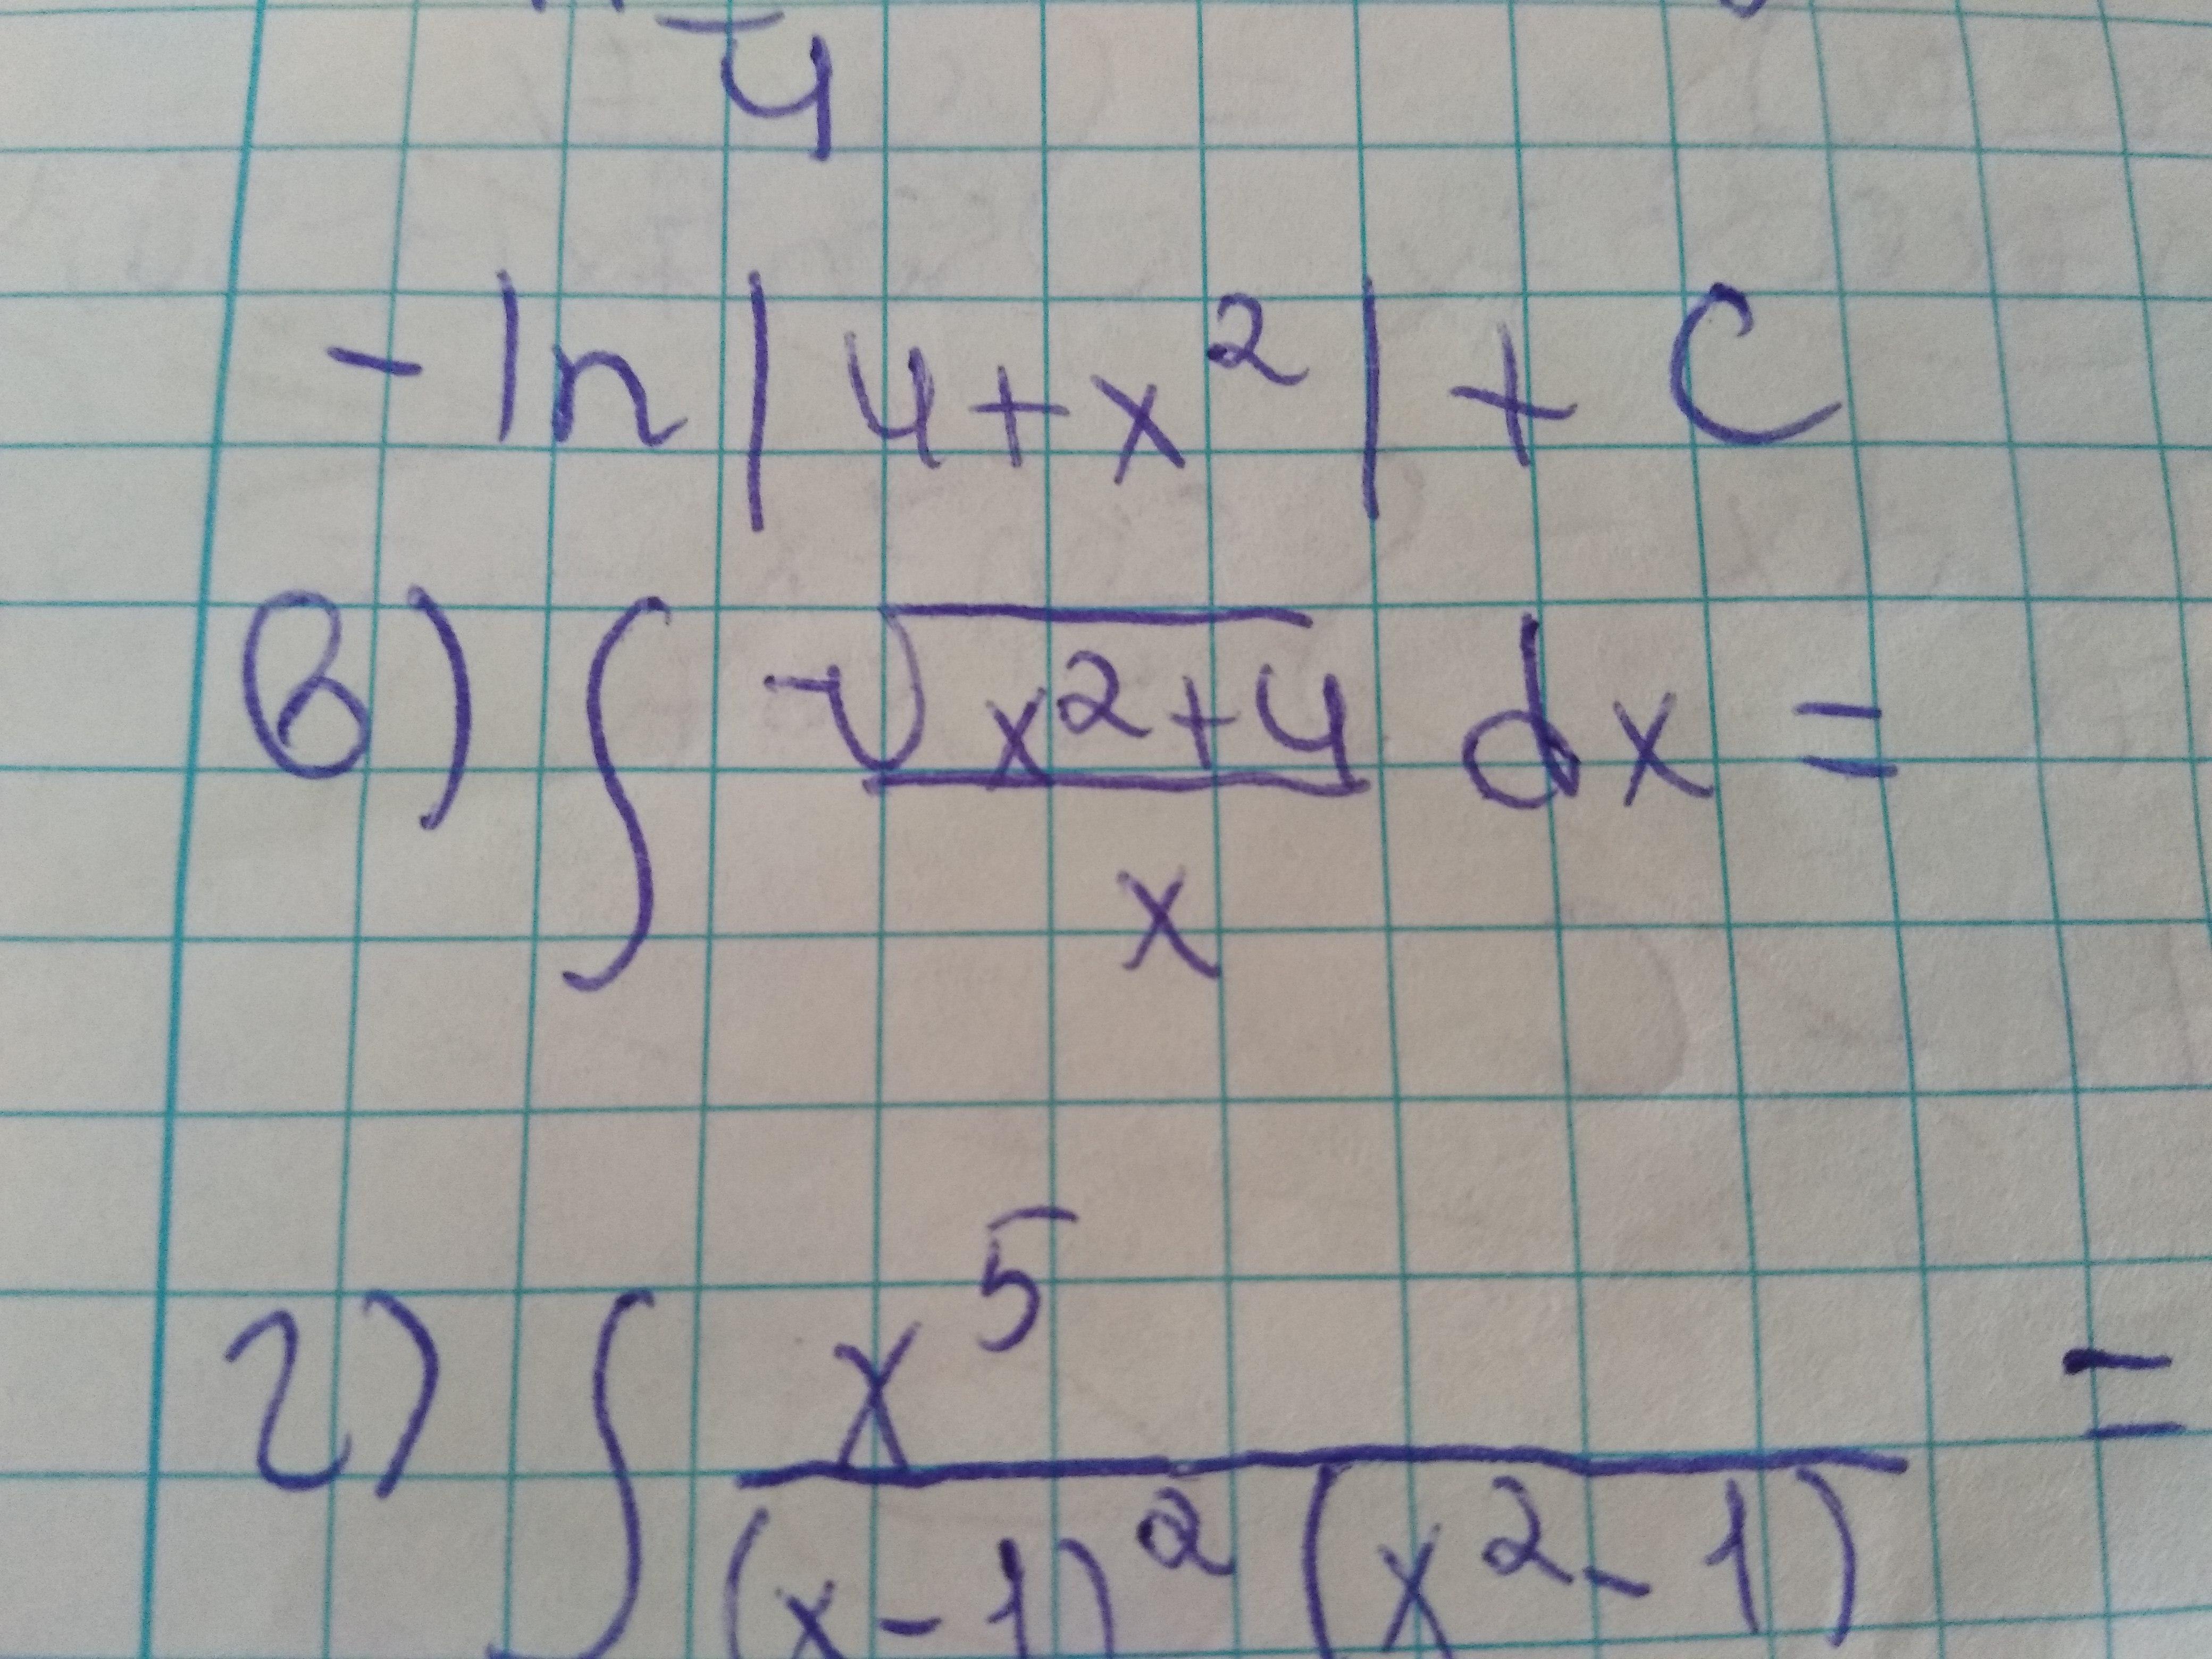 4
-ln|4+x²|+C
в) ∫ √(x²+4)/x dx =
г) ∫ x⁵/((x-1)²(x²-1)) =